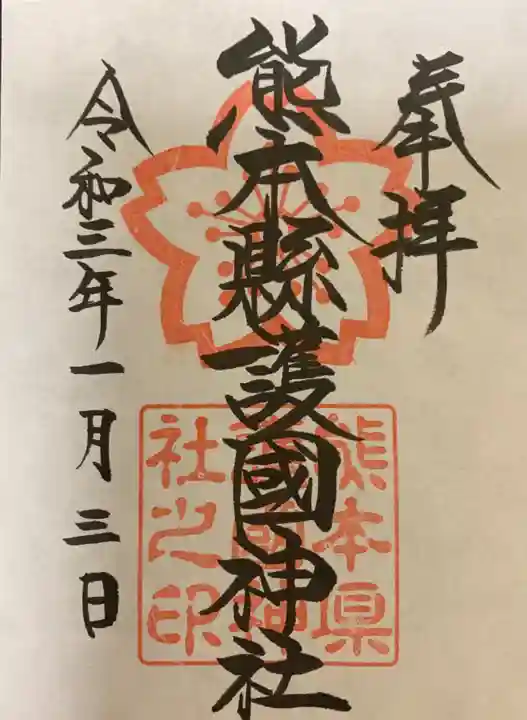 奉拝
熊本縣護國神社
熊本県
護國神
社之印
令和三年一月三日